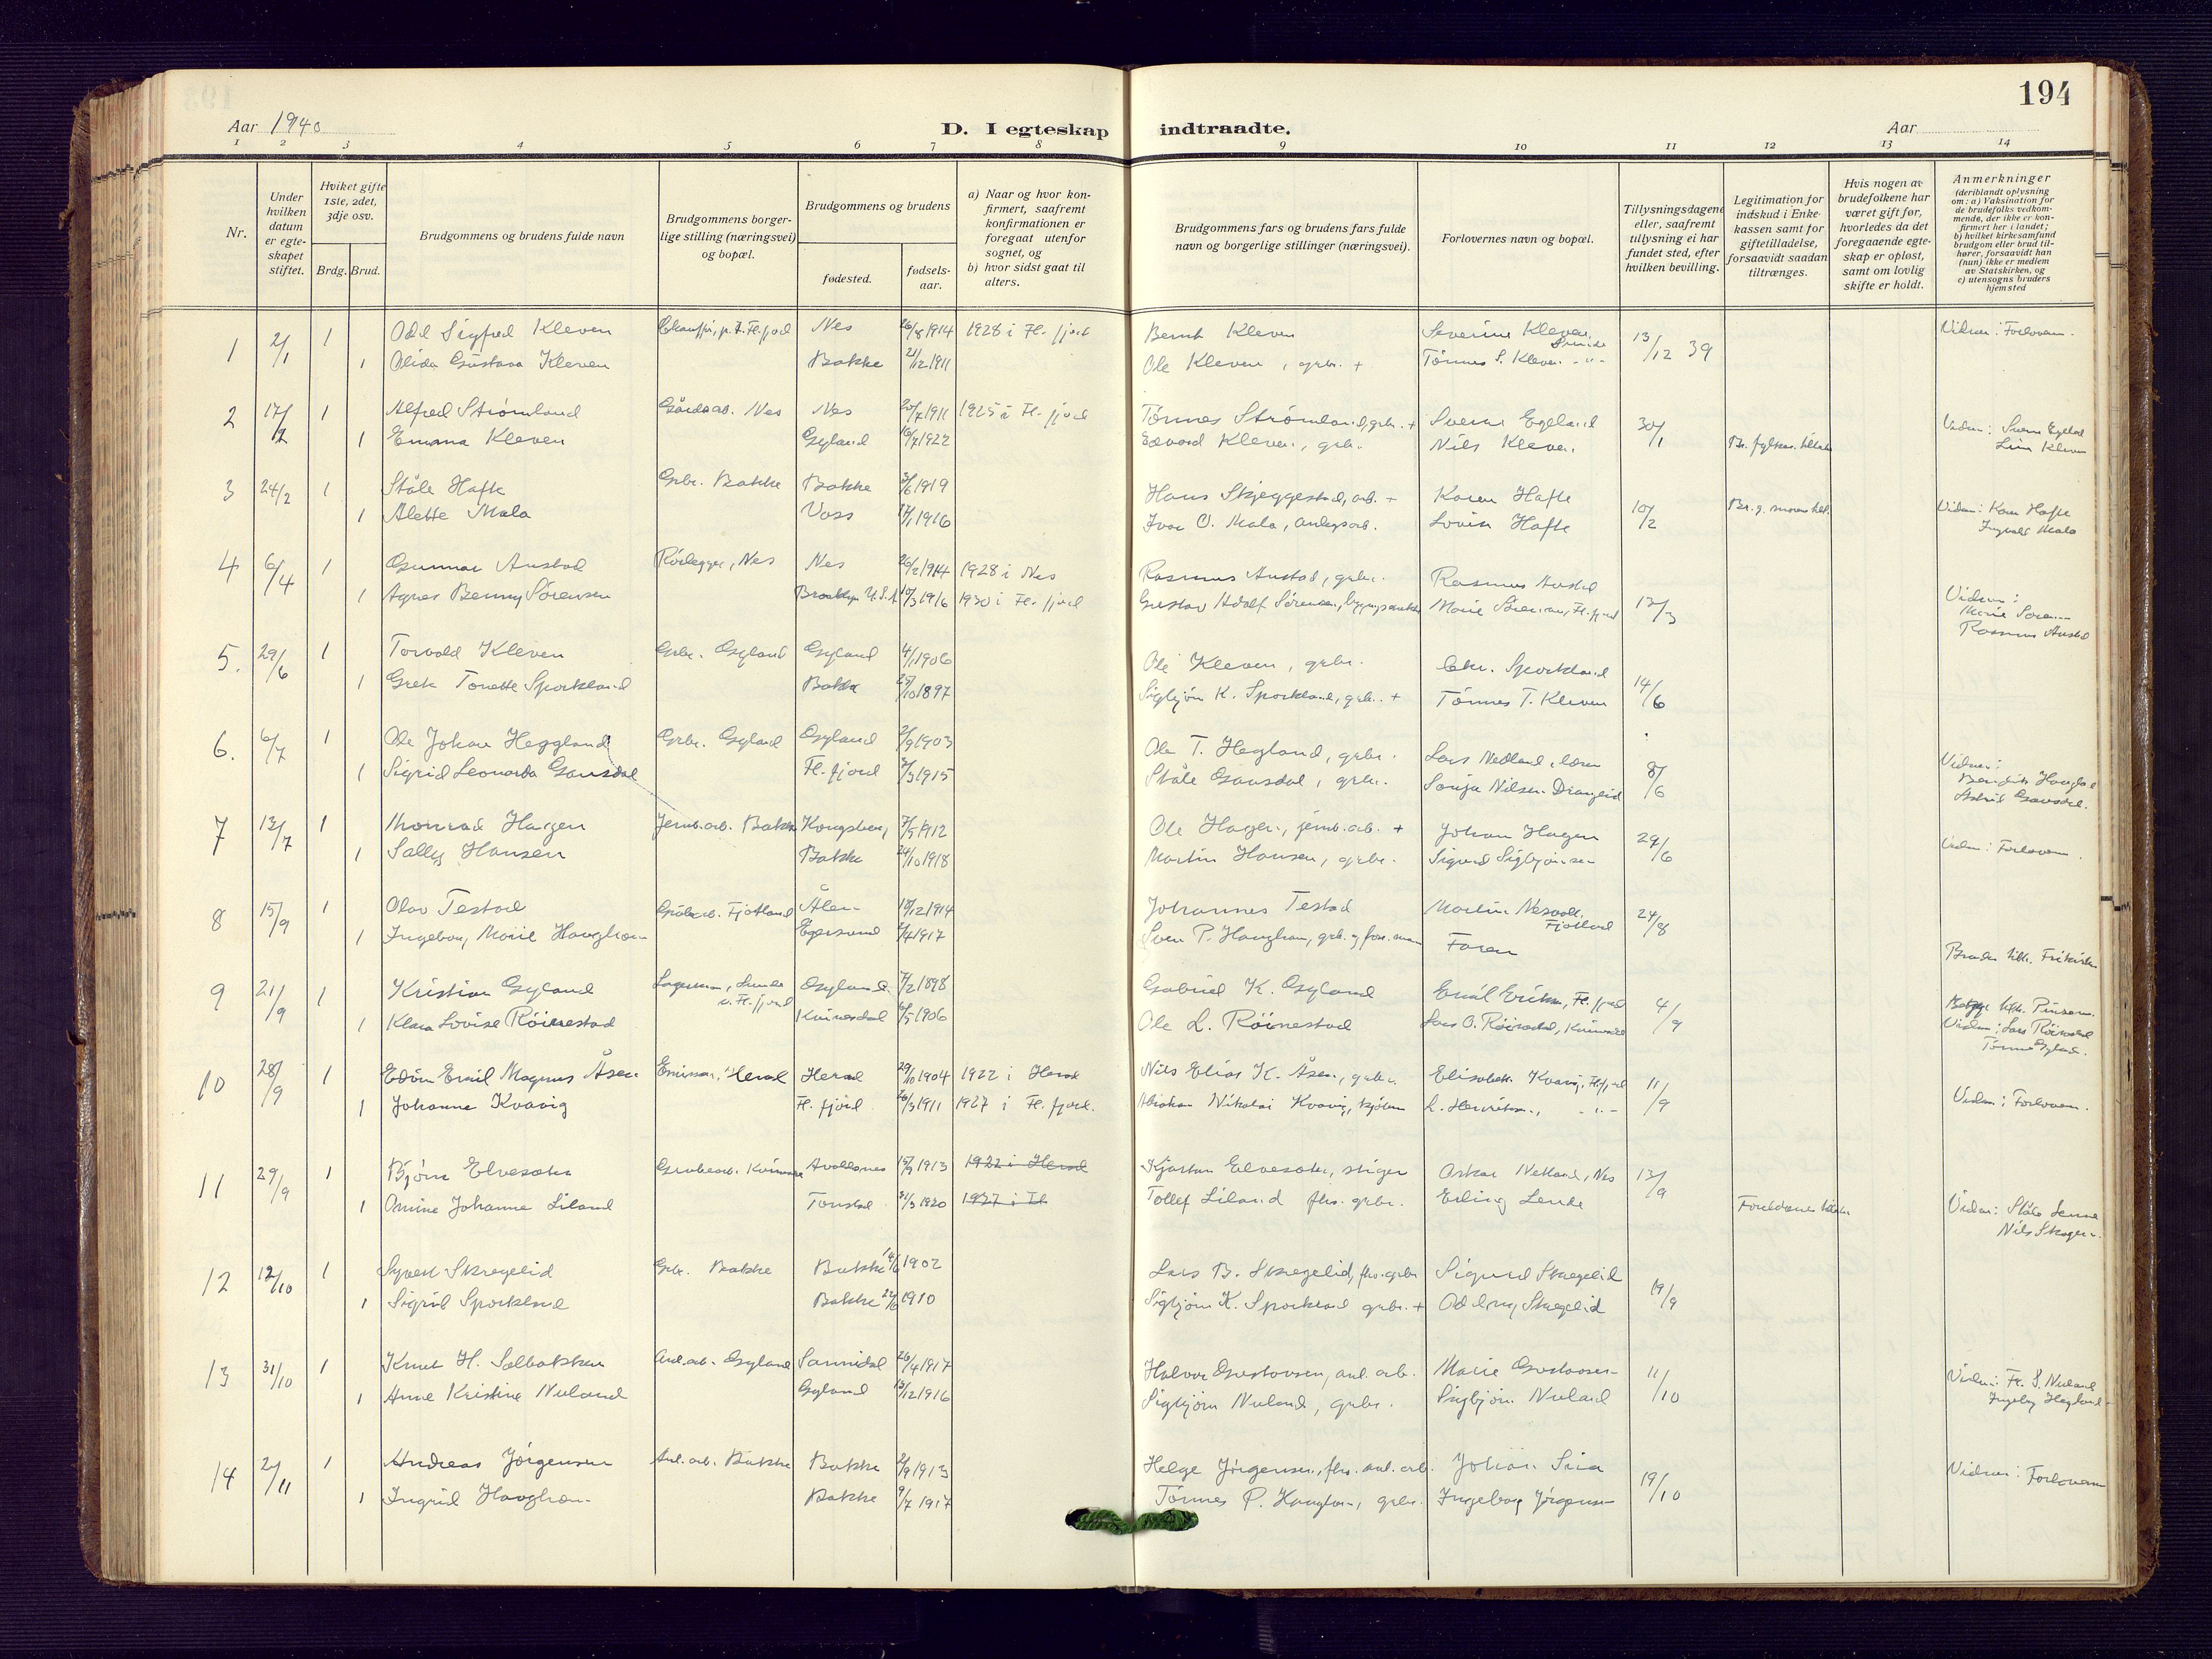 194
Aar 1940
D. I egteskap indtraadte.
Aar
1 2 3 4 5 6 7 8 9 10 11 12 13 14
Nr.
Under hvilken datum er egteskapet stiftet.
Hviket gifte 1ste, 2det, 3dje osv.
Brdg. Brud.
Brudgommens og brudens fulde navn
Brudgommens borgerlige stilling (næringsvei) og bopæl.
Brudgommens og brudens
fødested.
fødselsaar.
a) Naar og hvor konfirmert, saafremt konfirmationen er foregaat utenfor sognet, og
b) hvor sidst gaat til alters.
Brudgommens fars og brudens fars fulde navn og borgerlige stillinger (næringsvei).
Forlovernes navn og bopæl.
Tillysningsdagene eller, saafremt tillysning ei har fundet sted, efter hvilken bevilling.
Legitimation for indskud i Enkekassen samt for giftetilladelse, forsaavidt saadan tiltrænges.
Hvis nogen av brudefolkene har været gift før, hvorledes da det foregaaende egteskap er opløst, samt om lovlig skifte er holdt.
Anmerkninger (deriblandt oplysning om: a) Vaksination for de brudefolks vedkommende, der ikke er konfirmert her i landet; b) hvilket kirkesamfund brudgom eller brud tilhører, forsaavidt han (hun) ikke er medlem av Statskirken, og c) utensogns bruders hjemsted
1 2/1 1 Odd Sigfred Kleven Nes 26/8 1914 1928 i Fl. fjord Bernt Kleven Severine Kleven 13/12 39 Vidner: Forloverne.
1 Olida Gustava Kleven Bakke 21/12 1911 Ole Kleven, grbr. + Tønnes S. Kleven -"-
2 17/2 1 Alfred Strømland Gårdsarb. Nes Nes 1911 1925 i Fl. fjord Tønnes Strømland, grbr. + Sverre Egeland 30/1 Vidner: Sverre Egeland
1 Emma Kleven Gyland 1922 Edvard Kleven, grbr. Nils Kleven
3 24/2 1 Ståle Hafte Grbr. Bakke Bakke 1919 Hans Skjeggestad, arb. + Karen Hafte 10/2 Vidner: Karen Hafte
1 Alette Mala Voss 1916 Ivar O. Mala, anlegsarb. Lovise Hafte Ingvald Mala
4 6/4 1 Gunnar Austad Rørlegger, Nes Nes 26/2 1914 1928 i Nes Rasmus Austad, grbr. Rasmus Austad
1 Agnes Benny Sørensen Brooklyn U.S.A 10/3 1916 1930 i Fl. fjord Gustav Adolf Sørensen, Marie Sørensen, Fl. fjord 12/3 Vidner: Marie Sørensen Rasmus Austad
5. 29/6 1 Torvald Kleven Grbr. Gyland Gyland 4/1 1906 Ole Kleven, grbr. Chr. Sporkland 14/6
1 Grete Tonette Sporkland Bakke 25/10 1897 Sigbjørn K. Sporkland, grbr. + Tønnes T. Kleven
6. 6/7 1 Ole Johan Heggland Grbr. Gyland Gyland 2/9 1903 Ole T. Hegland, grbr. Lars Nedland, lærer 8/6 Vidner:
1 Sigrid Leonarda Gausdal Fl. fjord 1915 Ståle Gausdal, grbr. Sonja Nilsen Drangeid Astrid Gausdal.
7 13/7 1 Thorvald Hagen Jernb.arb. Bakke Kongsberg 7/5 1912 Ole Hagen, jernb.arb. + Johan Hagen 29/6 Vidner: Forloverne.
1 Sally Hansen Bakke 24/10 1918 Martin Hansen, grbr. Sigurd Sigbjørnsen
8 15/9 1 Olav Testad Fjotland Ålen 18/12 1914 Johannes Testad Fjotland 24/8
1 Ingeborg Marie Haughom Egersund 1917 Sven P. Haughom, Faren
9 21/9 1 Kristian Gyland Gyland 7/2 1898 Gabriel K. Gyland Emil Eriksen, Fl. fjord 4/9
1 Klara Lovise Røinestad Kvinesdal 6/5 1906 Ole L. Røinestad Lars O. Røinestad, Kvinesdal Vidner: Lars Røinestad Tønnes Gyland.
10 28/9 1 Edvin Emil Magnus Åsen Emissær, Herad Herad 29/10 1904 1922 i Herad Nils Elias K. Åsen, grbr. Elisabeth Kvavig, Fl.fjord 11/9
1 Johanne Kvavig Fl. fjord 26/3 1911 1927 i Fl. fjord. Abraham Nikolai Kvavig, L. Henriksen, -"- Vidner: Forloverne.
11 29/9 1 Bjørn Elvesæter Avaldsnes 1913 1922 i Herad Kjartan Elvesæter, stiger Oskar Netland, Nes 13/9
1 Omine Johanne Liland Tonstad 31/3 1920 1927 i Fl Tollef Liland fhv. grbr. Erling Lende Foreldrenes
12 12/10 1 Syvert Skregelid Grbr. Bakke Bakke 14/6 1902 Lars B. Skregelid, fhv. grbr Sigurd Skregelid 19/9
1 Sigrid Sporkland Bakke 1910 Sigbjørn K. Sporkland grbr. + Skregelid
13 31/10 1 Knut H. Solbakken Anl.arb. Gyland Sannidal 26/4 1917 Halvor Gustavsen, anl. arb. Marie Gustavsen 11/10 Vidner: Fr. S. Nuland
1 Anne Kristine Nuland Gyland 13/12 1916 Sigbjørn Nuland, grbr. Sigbjørn Nuland Ingeborg Hegland
14 2/11 1 Andreas Jørgensen Anl. arb. Bakke Bakke 2/9 1913 Helge Jørgensen, fhv. anl. arb. Johan Sira 19/10 Vidner: Forloverne
1 Ingrid Haughom Bakke 9/7 1917 Tønnes P. Haughom, grbr. Ingeborg Jørgensen